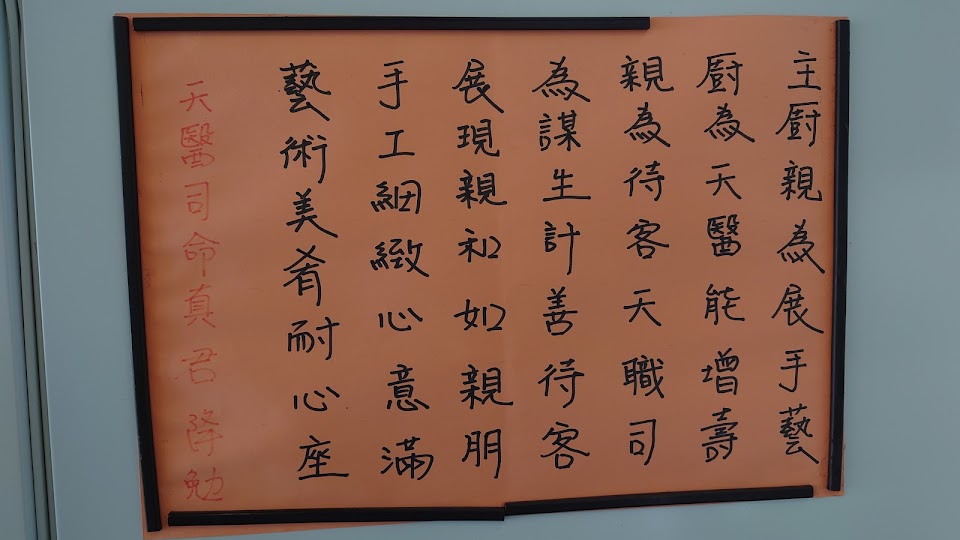 主廚親為展手藝
廚為天醫能增壽
親為待客天職司
為謀生計善待客
展現親和如親朋
手工細緻心意滿
藝術美肴耐心座
天醫司命真君降勉